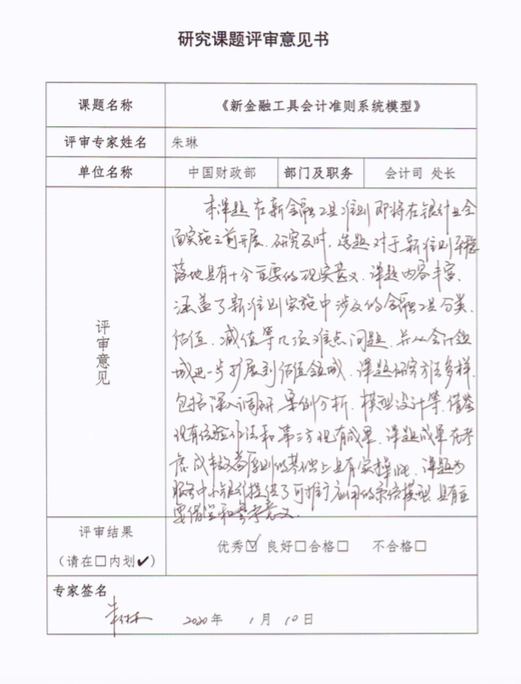 研究课题评审意见书
课题名称 《新金融工具会计准则系统模型》
评审专家姓名 朱琳
单位名称 中国财政部 部门及职务 会计司 处长
评审意见
本课题在新金融工具准则即将在银行业全
面实施之前开展,研究及时,选题对于新准则平稳
落地具有十分重要的现实意义。课题内容丰富,
涵盖了新准则实施中涉及的金融工具分类、
估值、减值等几项难点问题,并从会计领
域进一步扩展到估值领域。课题研究方法多样,
包括深入调研、案例分析、模型设计等,借鉴
现有经验作法和第三方现有成果。课题成果在考
虑成本效益原则的基础上具有实操性。课题为
服务中小银行提供了可推广应用的系统模型,具有重
要借鉴和参考意义。
评审结果
(请在□内划✔) 优秀☑ 良好□合格□ 不合格□
专家签名
朱琳 2020 年 1 月 10 日